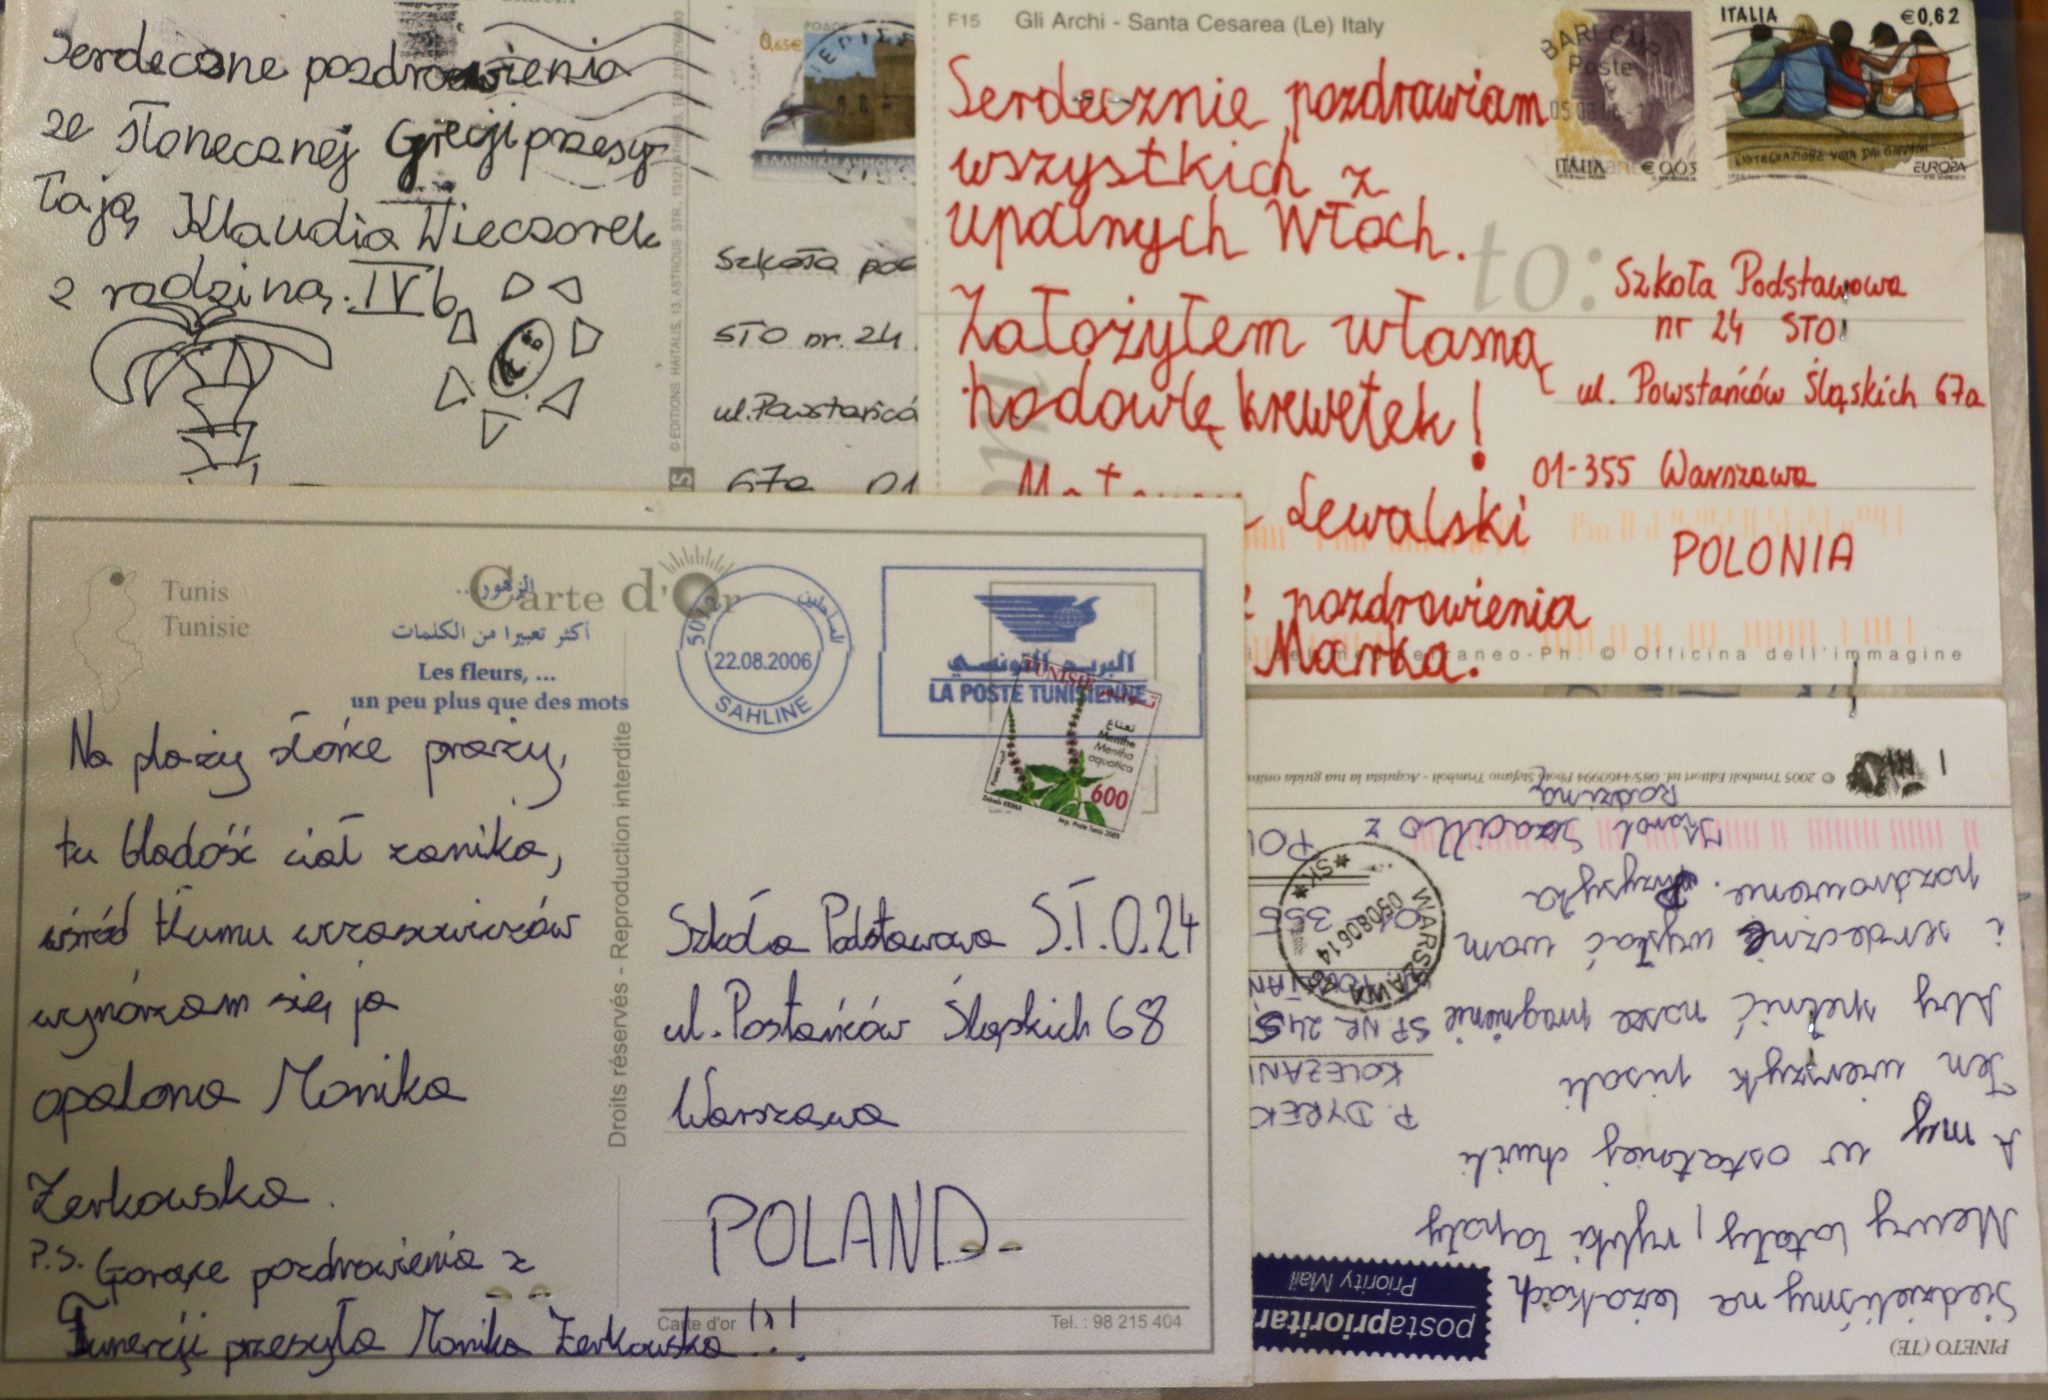 Serdeczne pozdrowienia
ze słonecznej Grecji przesy-
łają Klaudia Wieczorek
z rodziną. IV b
© EDITIONS HAITALIS, 13, ASTROUS STR., 13121 ATHENS
0,65€
ΕΛΛΗΝΙΚΗ ΔΗΜΟΚΡΑ
Szkoła pod
STO nr. 24
ul. Powstańcó
67a 01
F15 Gli Archi - Santa Cesarea (Le) Italy
Serdecznie pozdrawiam
wszystkich z
upalnych Włoch.
Założyłem własną
hodowlę krewetek!
Lewalski
pozdrowienia
Marka.
BARI CMP
Poste
ITALIA € 0,03
ITALIA €0,62
L'INTEGRAZIONE VISTA DAI GIOVANI
EUROPA
to:
Szkoła Podstawowa
nr 24 STO
ul. Powstańców Śląskich 67a
01-355 Warszawa
POLONIA
raneo-Ph. © Officina dell'immagine
Tunis
Tunisie
Carte d'Or
الزهور...
أكثر تعبيرا من الكلمات
Les fleurs, ...
un peu plus que des mots
5012
الساحلين
22.08.2006
SAHLINE
البريد التونسي
LA POSTE TUNISIENNE
TUNISIE
نعناع
Menthe
Mentha
aquatica
600
Na plaży słońce praży,
tu bladość ciał zanika,
wśród tłumu wczasowiczów
wynórzam się ja
opalona Monika
Żerkowska.
P.S. Gorące pozdrowienia z
Tunezji przesyła Monika Żerkowska!!!
Droits réservés - Reproduction interdite
Szkoła Podstawowa S.T.O.24
ul. Postańców Śląskich 68
Warszawa
POLAND
Carte d'or
Tel. : 98 215 404
PINETO (TE)
Siedzieliśmy na leżakach
Mewy latały, rybki łapały
A my w ostatniej chwili
Ten wierszyk pisali
Aby spełnić nasze pragnienie
i serdecznie wysłać wam
pozdrowienie. Przysyła
Karol z
Rodziną
postaprioritar
Priority Mail
P. DYREK
KOLEŻANI
SP NR. 24
355
POL
WARSZAWA
050806 14
*SK*
© 2005 Trimboli Editori tel. 085/4460994 Photo Stefano Trimboli - Acquista la tua guida onlin